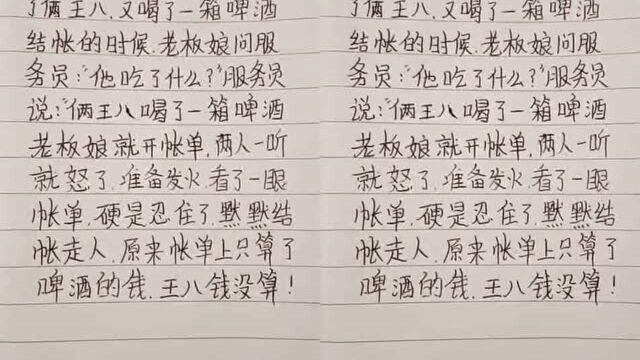 了俩王八,又喝了一箱啤酒
结帐的时候,老板娘问服
务员:"他吃了什么?"服务员
说:"俩王八喝了一箱啤酒
老板娘就开帐单,两人一听
就怒了,准备发火,看了一眼
帐单,硬是忍住了,默默结
帐走人,原来帐单上只算了
啤酒的钱,王八钱没算!
了俩王八,又喝了一箱啤酒
结帐的时候,老板娘问服
务员:"他吃了什么?"服务员
说:"俩王八喝了一箱啤酒
老板娘就开帐单,两人一听
就怒了,准备发火,看了一眼
帐单,硬是忍住了,默默结
帐走人,原来帐单上只算了
啤酒的钱,王八钱没算!